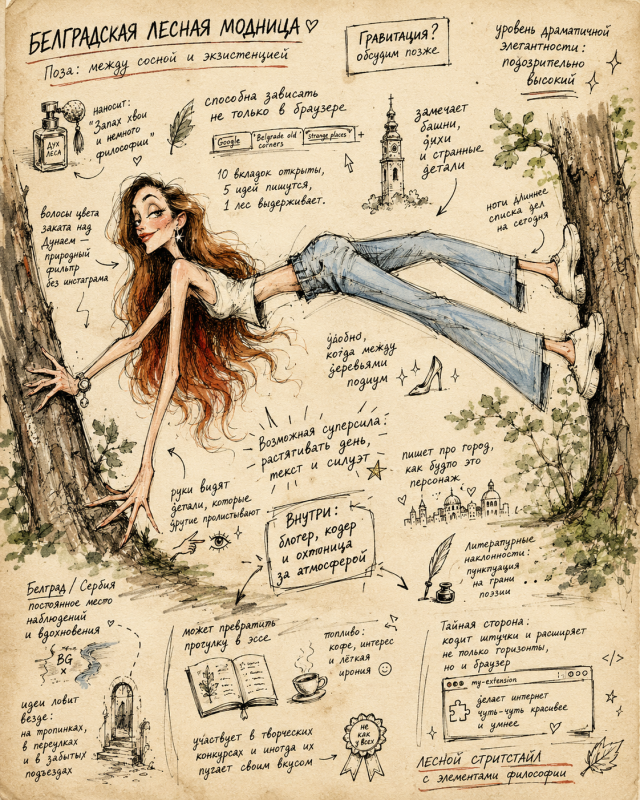 БЕЛГРАДСКАЯ ЛЕСНАЯ МОДНИЦА
Поза: между сосной и экзистенцией
Гравитация?
обсудим позже
уровень драматичной
элегантности:
подозрительно
высокий
наносит:
"Запах хвои
и немного
философии"
ДУХ
ЛЕСА
способна зависать
не только в браузере
Google
"Belgrade old
corners
"strange places"
+
10 вкладок открыты,
5 идей пишутся,
1 лес выдерживает.
замечает
башни,
духи
и странные
детали
ноги длиннее
списка дел
на сегодня
волосы цвета
заката над
Дунаем —
природный
фильтр
без инстаграма
удобно,
когда между
деревьями
подиум
Возможная суперсила:
растягивать день,
текст и силуэт
пишет про город,
как будто это
персонаж
руки видят
детали, которые
другие пролистывают
Внутри:
блогер, кодер
и охотница
за атмосферой
Литературные
наклонности:
пунктуация
на грани
поэзии
Белград / Сербия
постоянное место
наблюдений
и вдохновения
BG
×
идеи ловит
везде:
на тропинках,
в переулках
и в забытых
подъездах
может превратить
прогулку в эссе
топливо:
кофе, интерес
и лёгкая
ирония
участвует в творческих
конкурсах и иногда их
пугает своим вкусом
не
как
у всех
Тайная сторона:
кодит штуки и расширяет
не только горизонты,
но и браузер
</>
my-extension
делает интернет
чуть-чуть красивее
и умнее
ЛЕСНОЙ СТРИТСТАЙЛ
с элементами философии